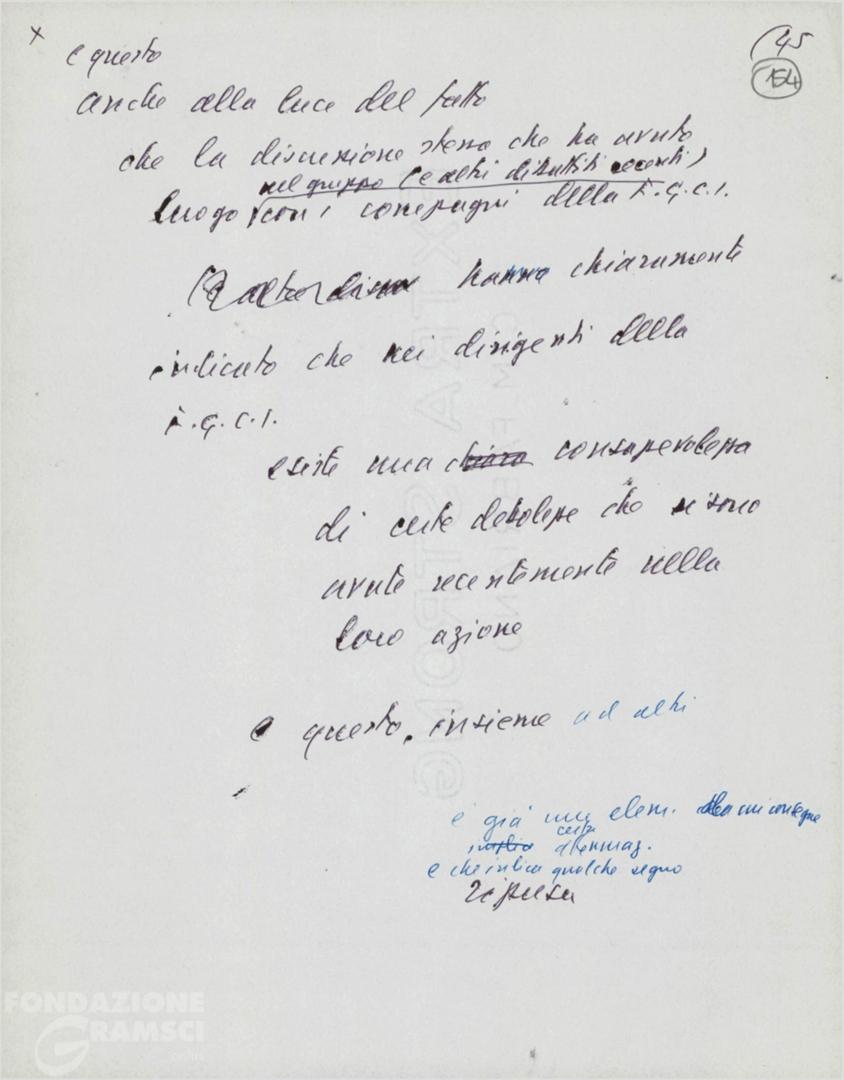 x
(45
154
e questo
anche alla luce del fatto
che la discussione stessa che ha avuto
nel gruppo (e altri dibattiti recenti)
luogo con i compagni della F.G.C.I.
hanno chiaramente
indicato che nei dirigenti della
F.G.C.I.
esiste una chiara consapevolezza
di certe debolezze che si sono
avute recentemente nella
loro azione
e questo, insieme ad altri
è già un elem.
certa
e che indica qualche segno
ripresa
FONDAZIONE
GRAMSCI